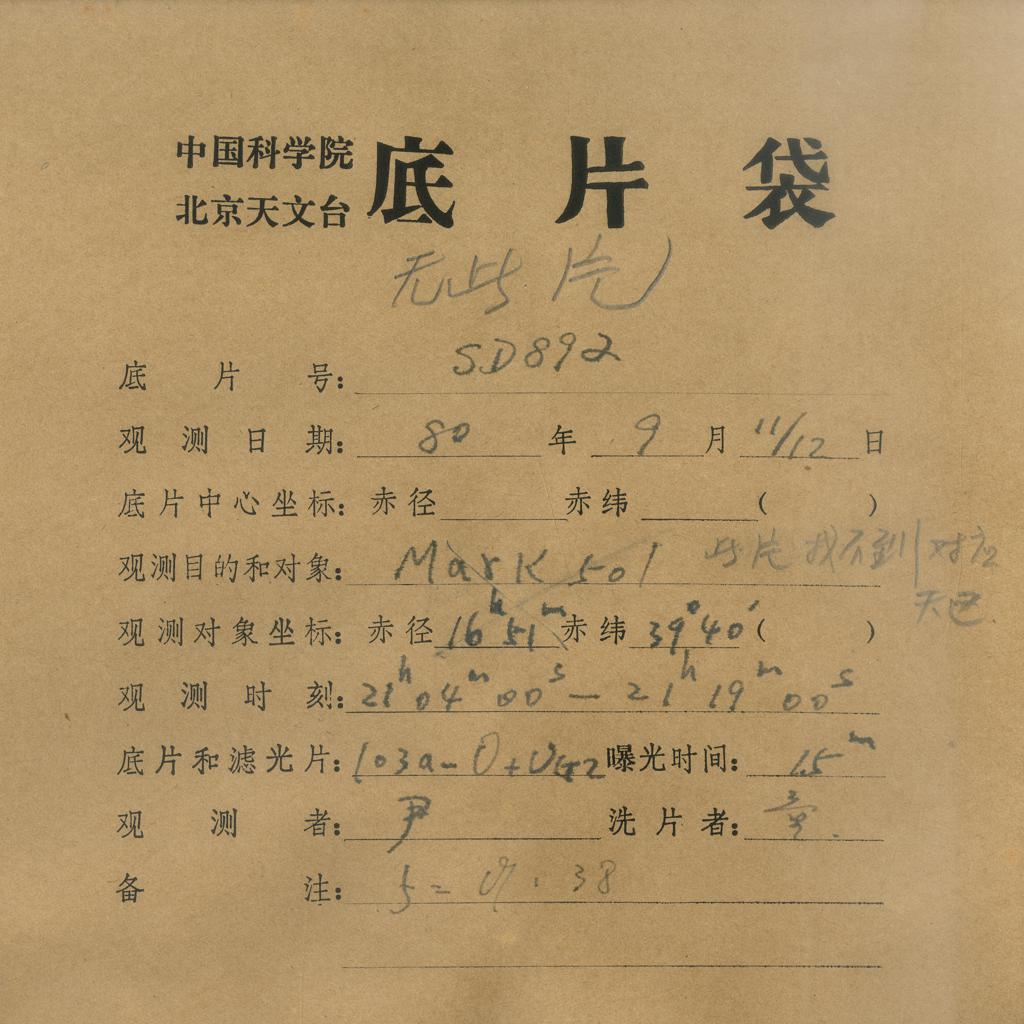 中国科学院
北京天文台
底片袋
无此片
底片号: SD892
观测日期: 80年 9月 11/12日
底片中心坐标: 赤径 赤纬 ( )
观测目的和对象: Mark 501 此片找不到对应
天区
观测对象坐标: 赤径 16h51m 赤纬 39°40′ ( )
观测时刻: 21h04m00s — 21h19m00s
底片和滤光片: 103a-O+UG2 曝光时间: 15m
观测者: 尹 洗片者:
备注: